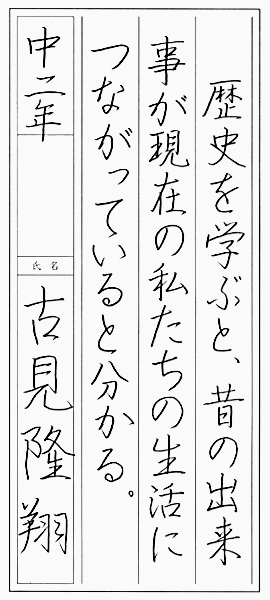 歴史を学ぶと、昔の出来
事が現在の私たちの生活に
つながっていると分かる。
中二年
氏名
古見隆翔